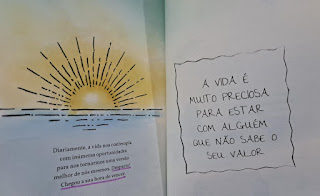 Diariamente, a vida nos contempla
com inúmeras oportunidades
para nos tornarmos uma versão
melhor de nós mesmos. Desperte!
Chegou a sua hora de vencer.
A VIDA É
MUITO PRECIOSA
PARA ESTAR
COM ALGUÉM
QUE NÃO SABE O
SEU VALOR